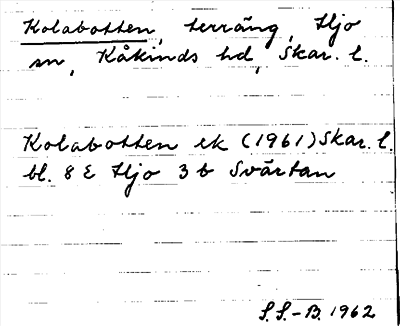 Kolabotten, terräng, Hjo
sn, Kåkinds hd, Skar. l.
Kolabotten ek (1961) Skar. l.
bl. 8 E Hjo 3 b Svärtan
S.S.-B. 1962